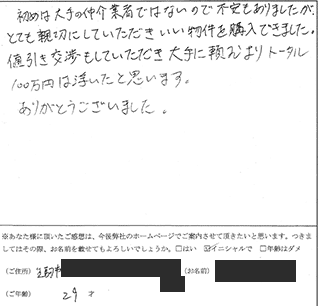 初めは大手の仲介業者ではないので不安もありましたが、
とても親切にしていただきいい物件を購入できました。
値引き交渉もしていただき大手に頼むよりトータル
100万円は浮いたと思います。
ありがとうございました。
※あなた様に頂いたご感想は、今後弊社のホームページでご案内させて頂きたいと思います。つきま
してはその際、お名前を載せてもよろしいでしょうか。□はい ☑イニシャルで □年齢はダメ
(ご住所) 生駒市 (お名前)
(ご年齢) 29 才